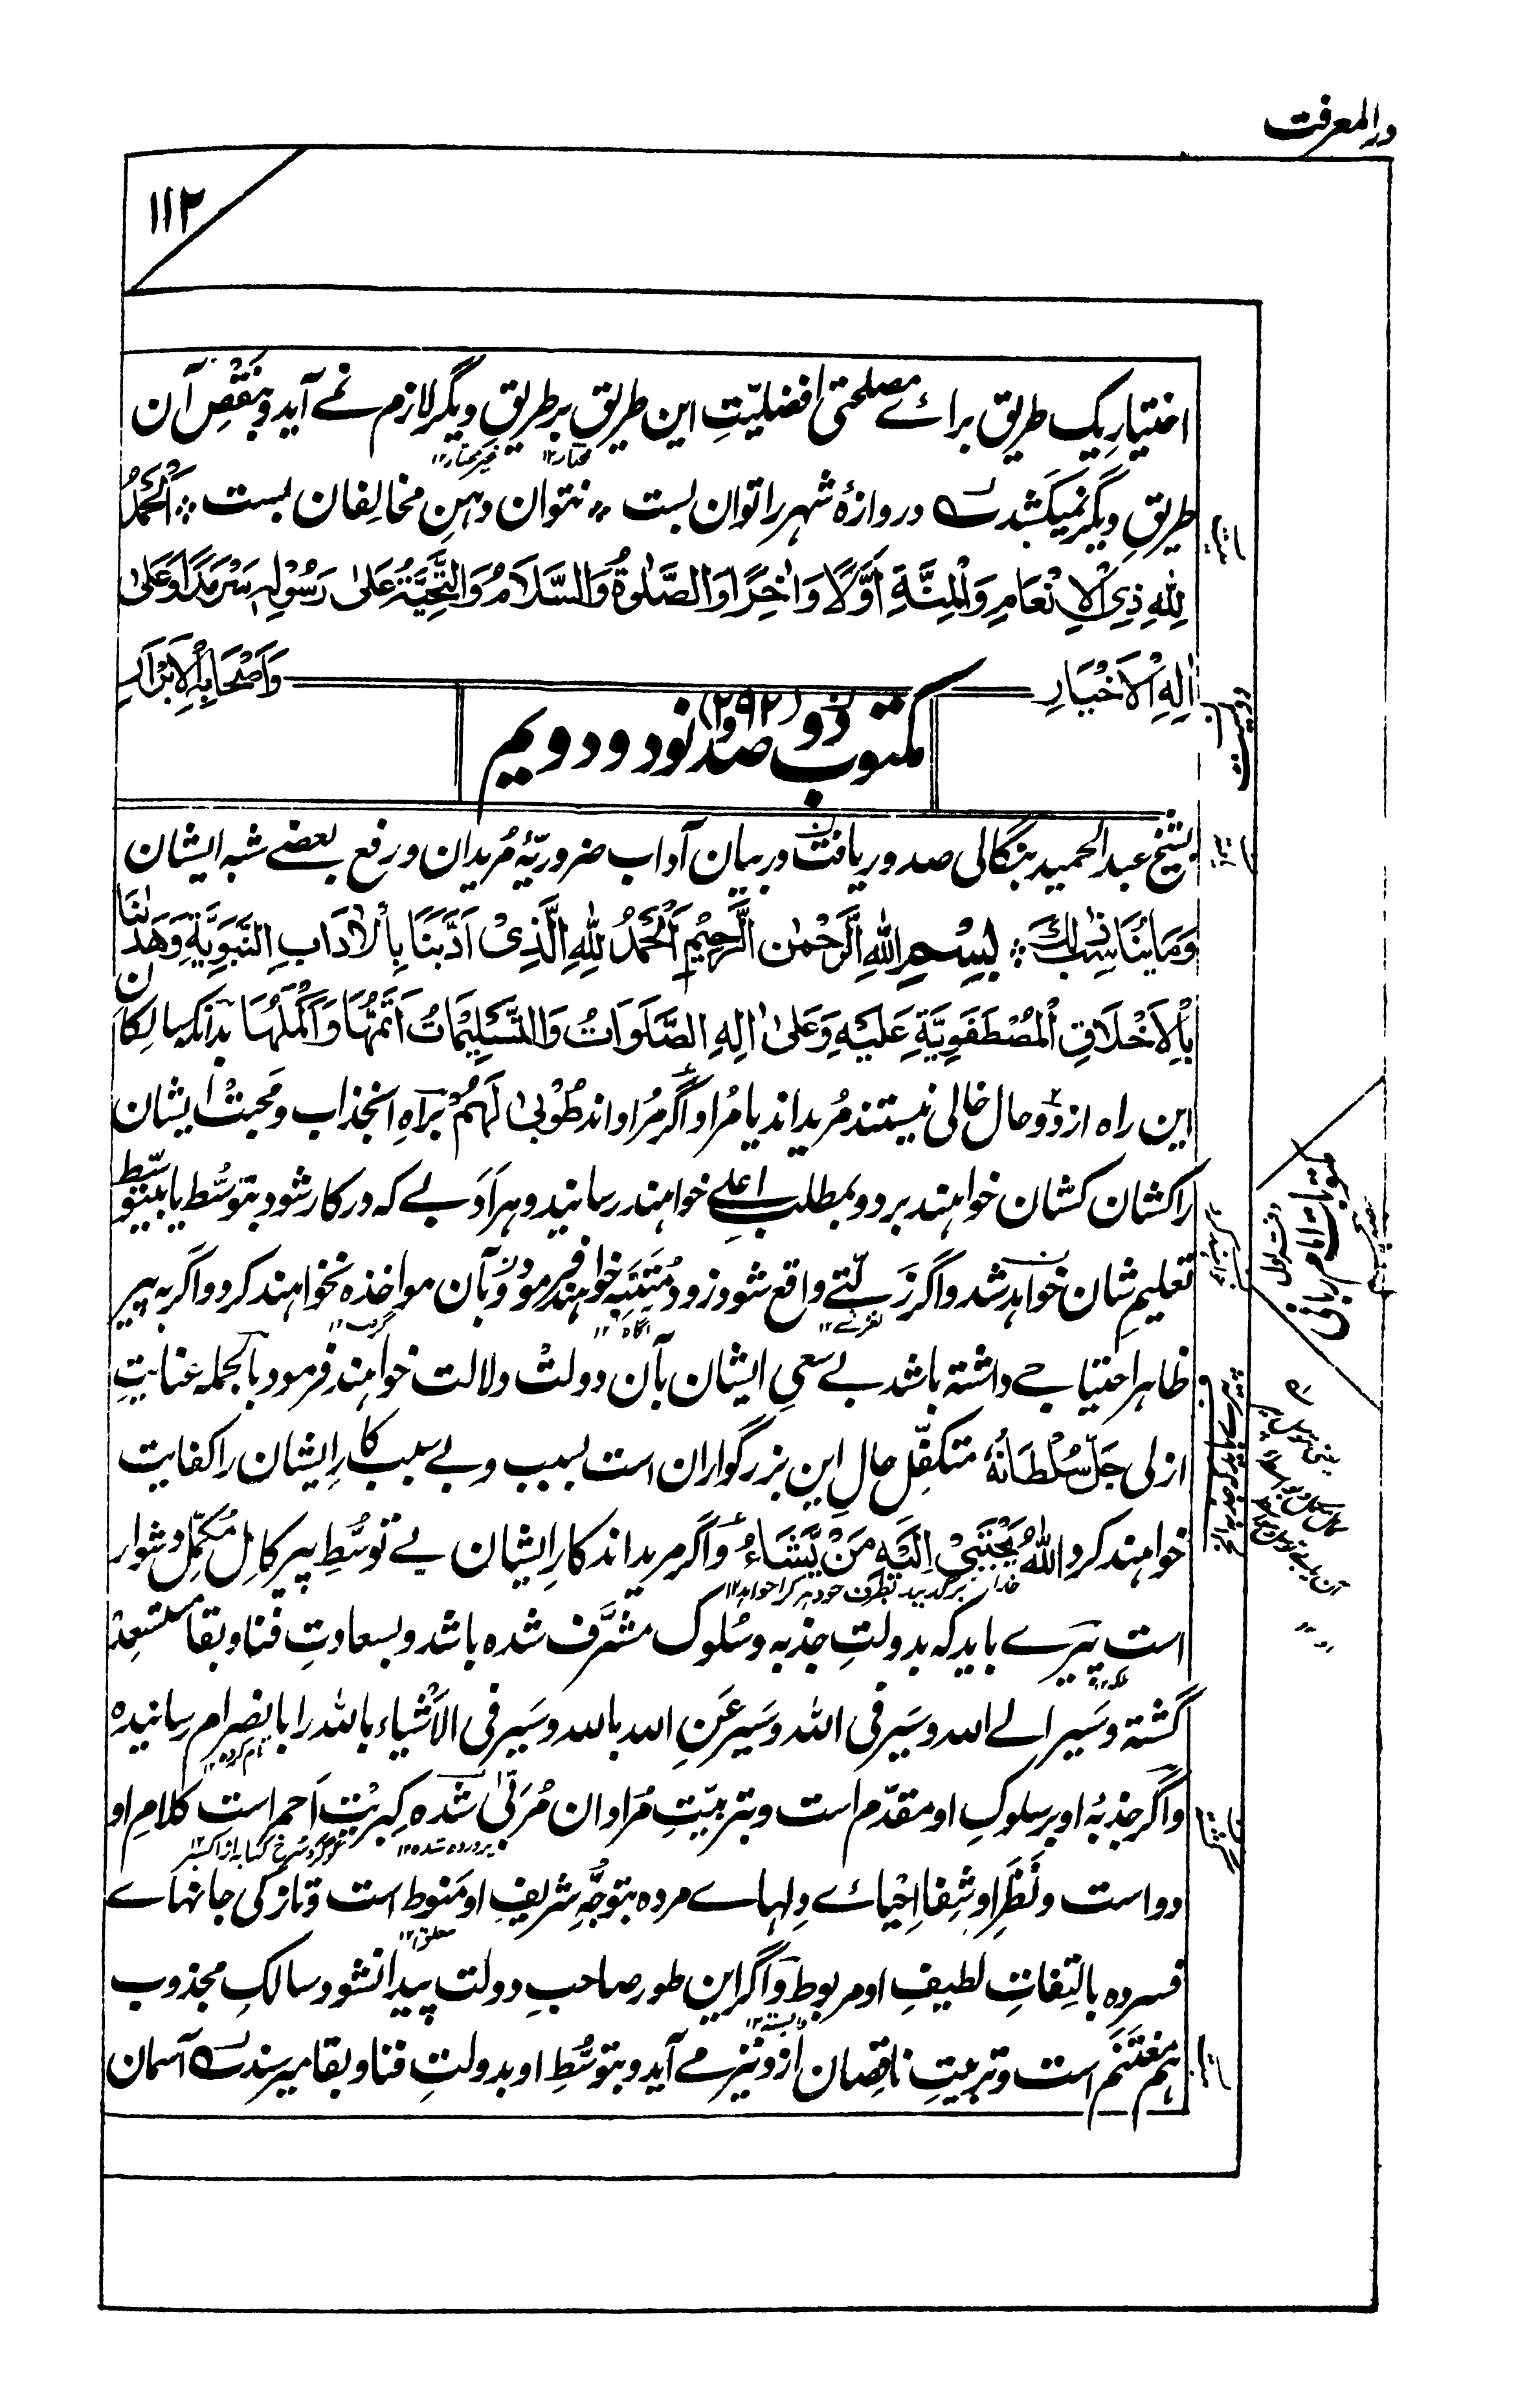 درالمعرفت
۱۱۲
اختیارِ یک طریق برائے مصلحتی افضلیّتِ این طریق بر طریقِ دیگر لازم نمے آید و بنقصِ آن
مختار۱۲ غیر مختار۱۲
طریقِ دیگر نمیکشد ؎ دروازۂ شہر را توان بست ٭ نتوان دہنِ مخالِفان بست ٭ اَلْحَمْدُ
لِلّٰہِ ذِی الْاِنْعَامِ وَالْمِنَّۃِ اَوَّلًا وَاٰخِرًا وَالصَّلٰوۃُ وَالسَّلَامُ وَالتَّحِیَّۃُ عَلٰی رَسُوْلِہٖ سَرْمَدًا وَعَلٰی
اٰلِہِ الْاَخْیَارِ وَاَصْحَابِہِ الْاَبْرَارِ
مکتوب دو صد و نود و دویم (۲۹۲)
بشیخ عبدالحمید بنگالی صدور یافتہ در بیان آداب ضروریّۂ مُریدان و رفع بعضے شبہ ایشان
وَمَا یُنَاسِبُ ذٰلِكَ ٭ بِسْمِ اللّٰہِ الرَّحْمٰنِ الرَّحِیْمِ اَلْحَمْدُ لِلّٰہِ الَّذِیْ اَدَّبَنَا بِالْاٰدَابِ النَّبَوِیَّۃِ وَھَدٰىنَا
بِالْاَخْلَاقِ الْمُصْطَفَوِیَّۃِ عَلَیْہِ وَعَلٰی اٰلِہِ الصَّلَوَاتُ وَالتَّسْلِیْمَاتُ اَتَمُّہَا وَاَکْمَلُہَا بدانکہ سالکان
این راہ از دو حال خالی نیستند مُریداند یا مُراد اگر مُراداند طُوْبٰی لَہُمْ براہِ انجذاب و محبّت ایشان
را کشان کشان خواہند برد و بمطلب اعلےٰ خواہند رسانید و ہر اَدَبے کہ در کار شود بتوسّط یا بیتوسّط
تعلیمِ شان خواہد شد و اگر زَلّتے واقع شود زود مُتنَبِّہ خواہند فرمود و بآن مواخذہ نخواہند کرد و اگر بہ پیر
لغزشے۱۲ آگاہ۱۲ گرفت۱۲
ظاہر احتیاجے داشتہ باشد بے سعیِ ایشان بآن دولت دلالت خواہند فرمود بالجملہ عنایتِ
ازلی جَلَّ سُلْطَانُہٗ متکفّلِ حالِ این بزرگواران است بسبب و بے سبب کارِ ایشان را کفایت
خواہند کرد اَللّٰہُ یَجْتَبِیْ اِلَیْہِ مَنْ یَّشَاءُ و اگر مریداند کارِ ایشان بے توسُّطِ پیرِ کاملِ مُکمّل دشوار
خدا برگزیند بطرف خود ہر کرا خواہد۱۲
است پیرے باید کہ بدولتِ جذبہ و سُلوک مشرَّف شدہ باشد و بسعادتِ فنا و بقا مستسعد
گشتہ و سَیر الے اللہ و سَیر فی اللہ و سَیر عَنِ اللہ باللہ و سَیر فی الاَشْیاء باللہ را بانصرام رسانیدہ
تمام کردہ
و اگر جذبۂ او بر سلوکِ او مقدّم است و بتربیّتِ مُرادان مُربّٰی شدہ کبریتِ اَحمر است کلامِ او
پروردہ شدہ۱۲ گوگرد سرخ کنایہ از اکسیر۱۲
دواست و نَظَرِ او شِفا اِحْیائے دِلہاے مردہ بتوجّہِ شریفِ او مَنوط است و تازگی جانہاے
معلق۱۲
فسردہ بالتفاتِ لطیفِ او مربوط و اگر این طور صاحبِ دولت پیدا نشود سالکِ مجذوب
وابستہ۱۲
ہم مغتَنَم است و تربیتِ ناقصان ازو نیز مے آید و بتوسُّطِ او بدولتِ فنا و بقا میرسند ؎ آسمان
مکتوبات امام ربانی
دفتر اول